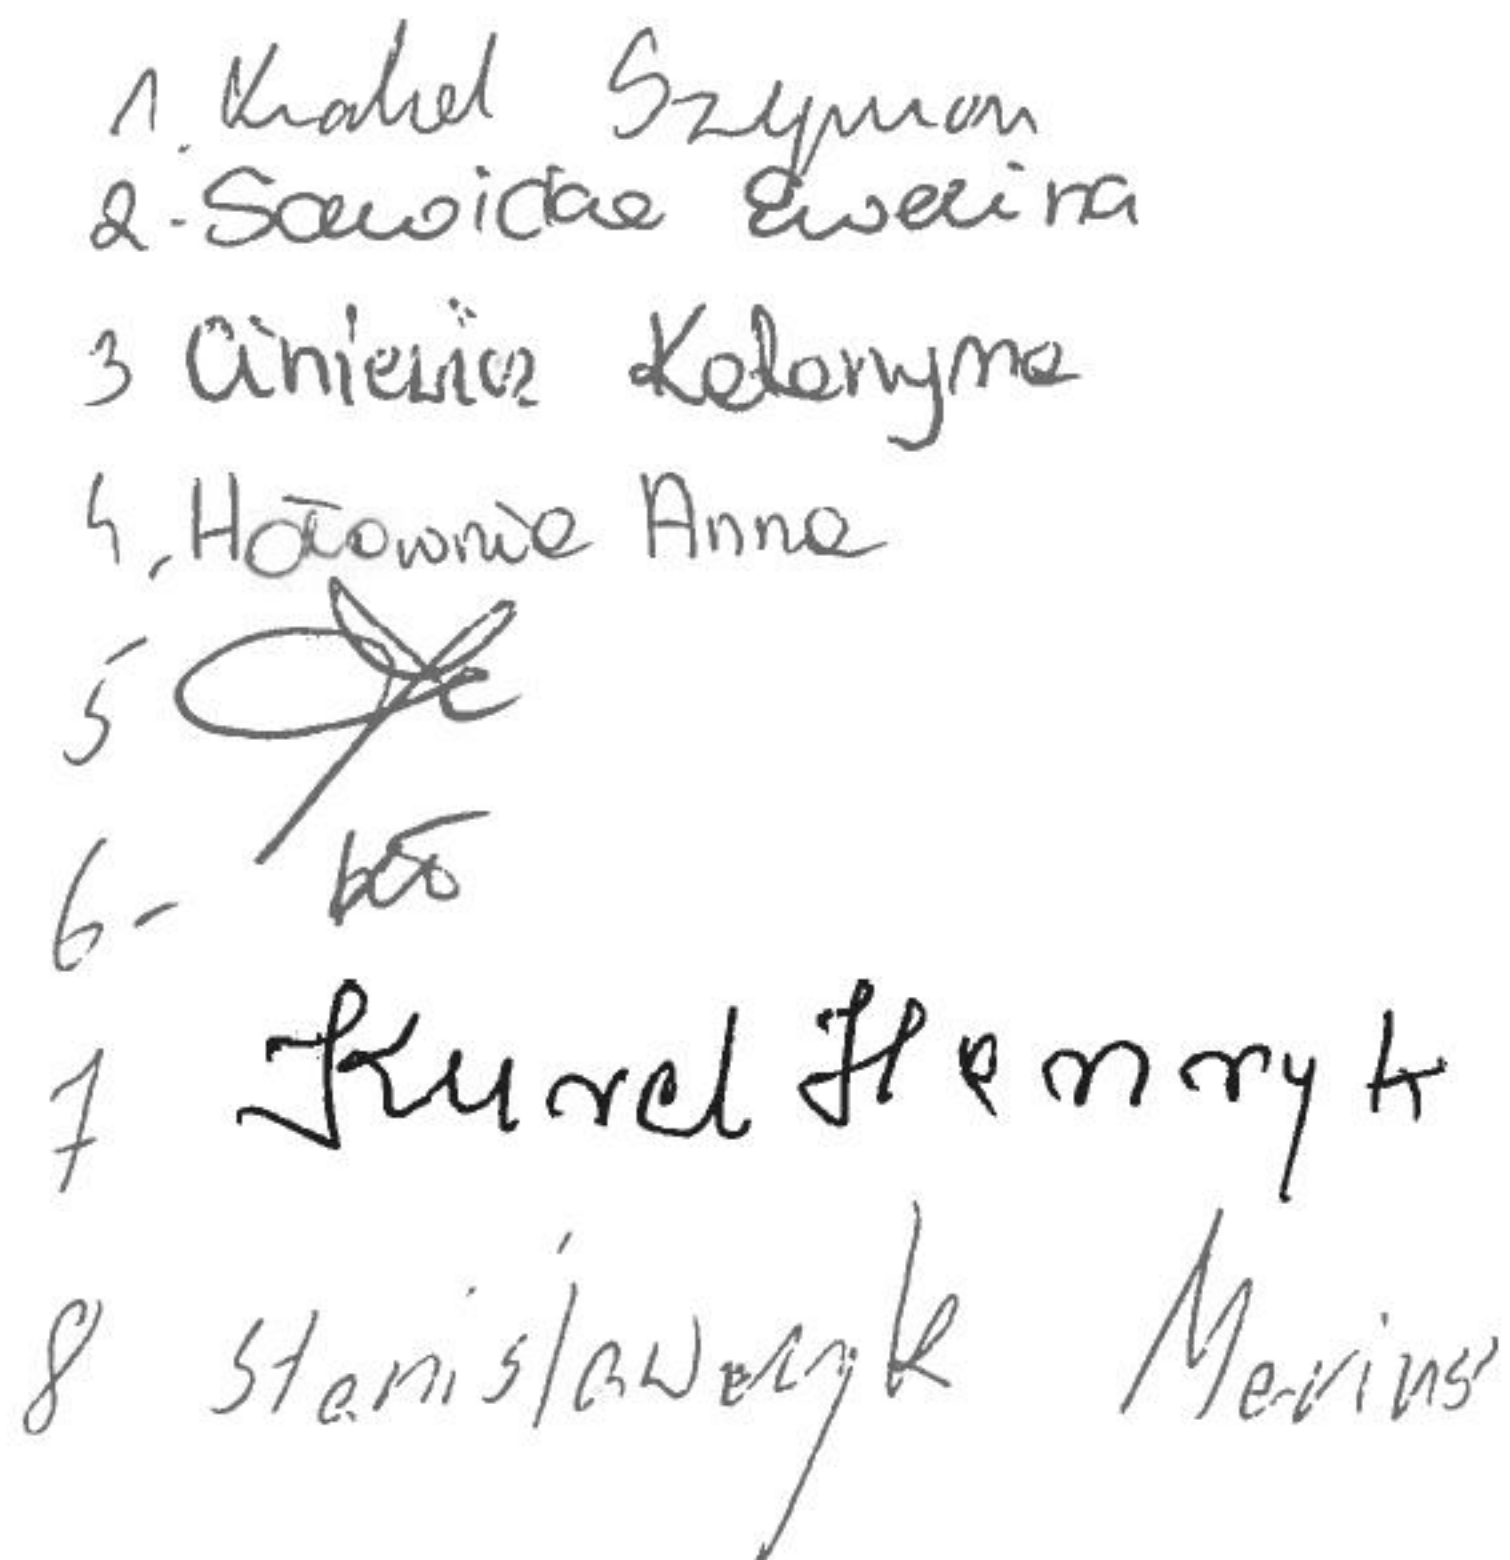 1. Krahel Szymon
2. Sawicka Ewelina
3 Aniewicz Katarzyna
4. Hołownia Anna
5
6 -
7 Kurel Henryk
8 Stanisławczyk Mariusz